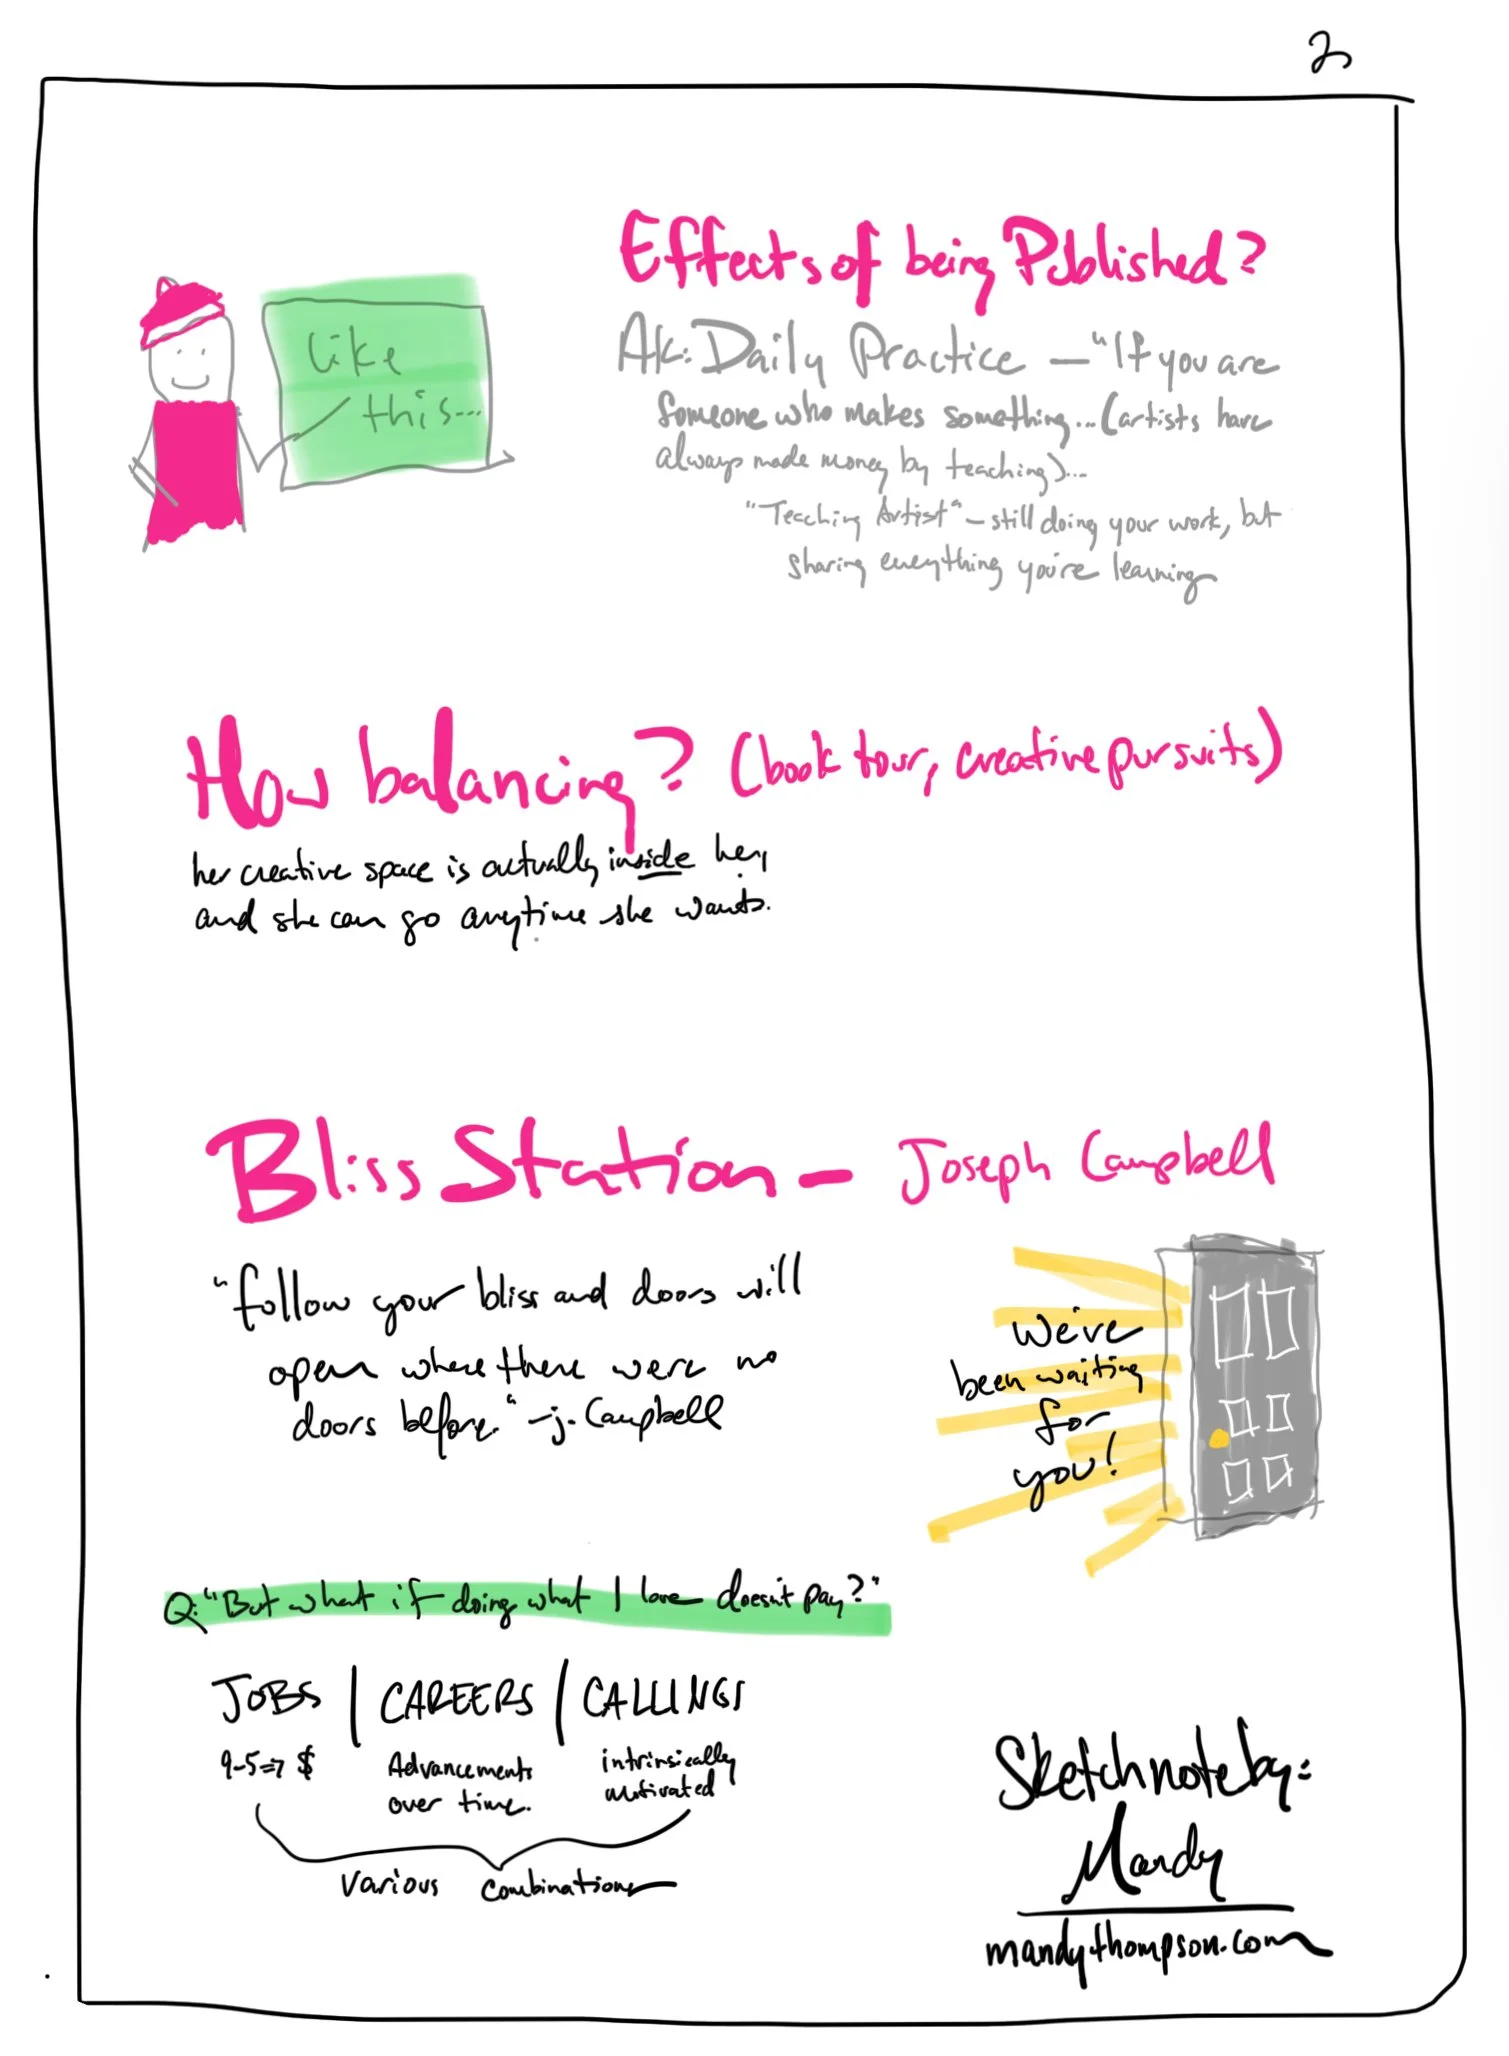 2
Effects of being Published?
like
this...
AK: Daily Practice — "If you are
someone who makes something... (artists have
always made money by teaching)...
"Teaching Artist" – still doing your work, but
sharing everything you're learning
How balancing? (book tour, creative pursuits)
her creative space is actually inside her,
and she can go anytime she wants.
Bliss Station – Joseph Campbell
"follow your bliss and doors will
open where there were no
doors before." – j. Campbell
We've
been waiting
for
you!
Q: "But what if doing what I love doesn't pay?"
JOBS | CAREERS | CALLINGS
9-5 => $ Advancements intrinsically
over time. motivated
various combinations
Sketchnote by:
Mandy
mandythompson.com